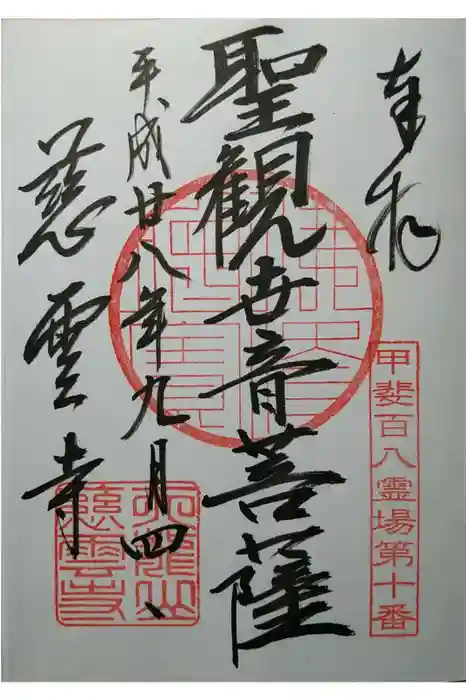 奉拝
甲斐百八霊場第十番
聖観世音菩薩
平成廿八年九月四、
慈雲寺
慈雲寺